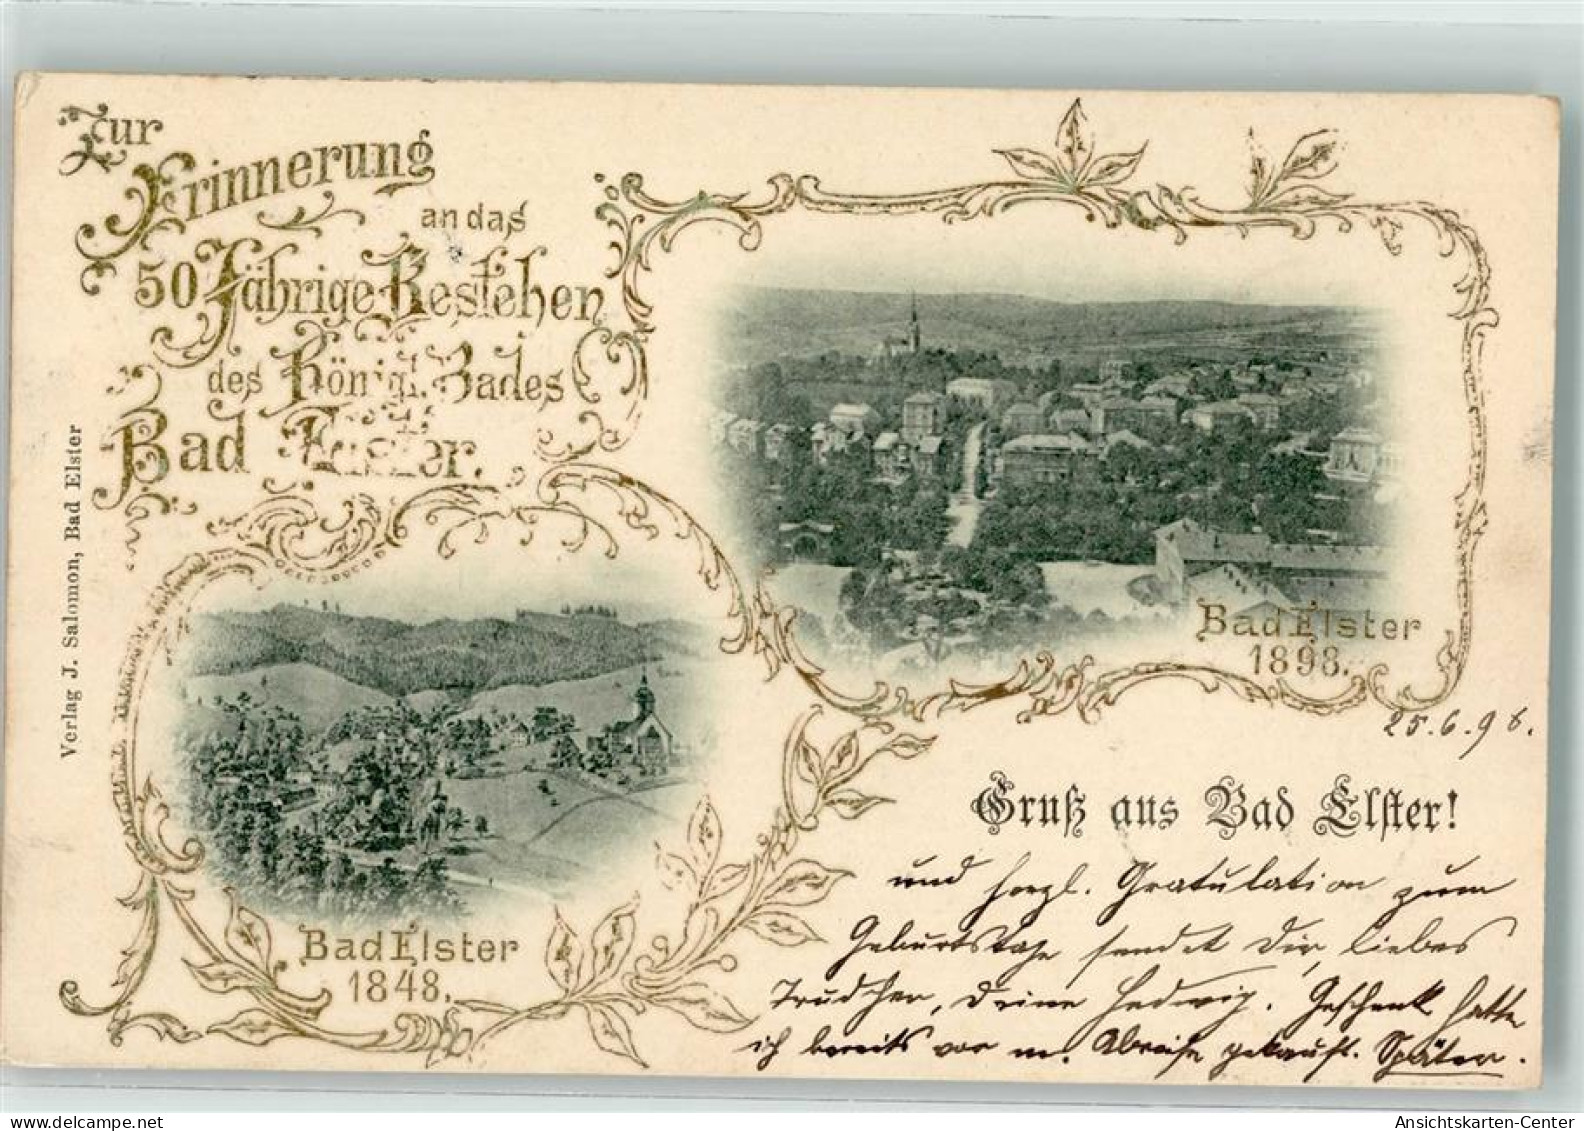 Zur
Erinnerung
an das
50 Jährige Bestehen
des Königl. Bades
Bad Elster.
Verlag J. Salomon, Bad Elster
Bad Elster
1898.
Bad Elster
1848.
25.6.98.
Gruß aus Bad Elster!
und herzl. Gratulation zum
Geburtstage sendet Dir, liebes
Trudchen, Deine Hedwig. Geschenk hatte
ich bereits vor m. Abreise gekauft. Später.
Ansichtskarten-Center